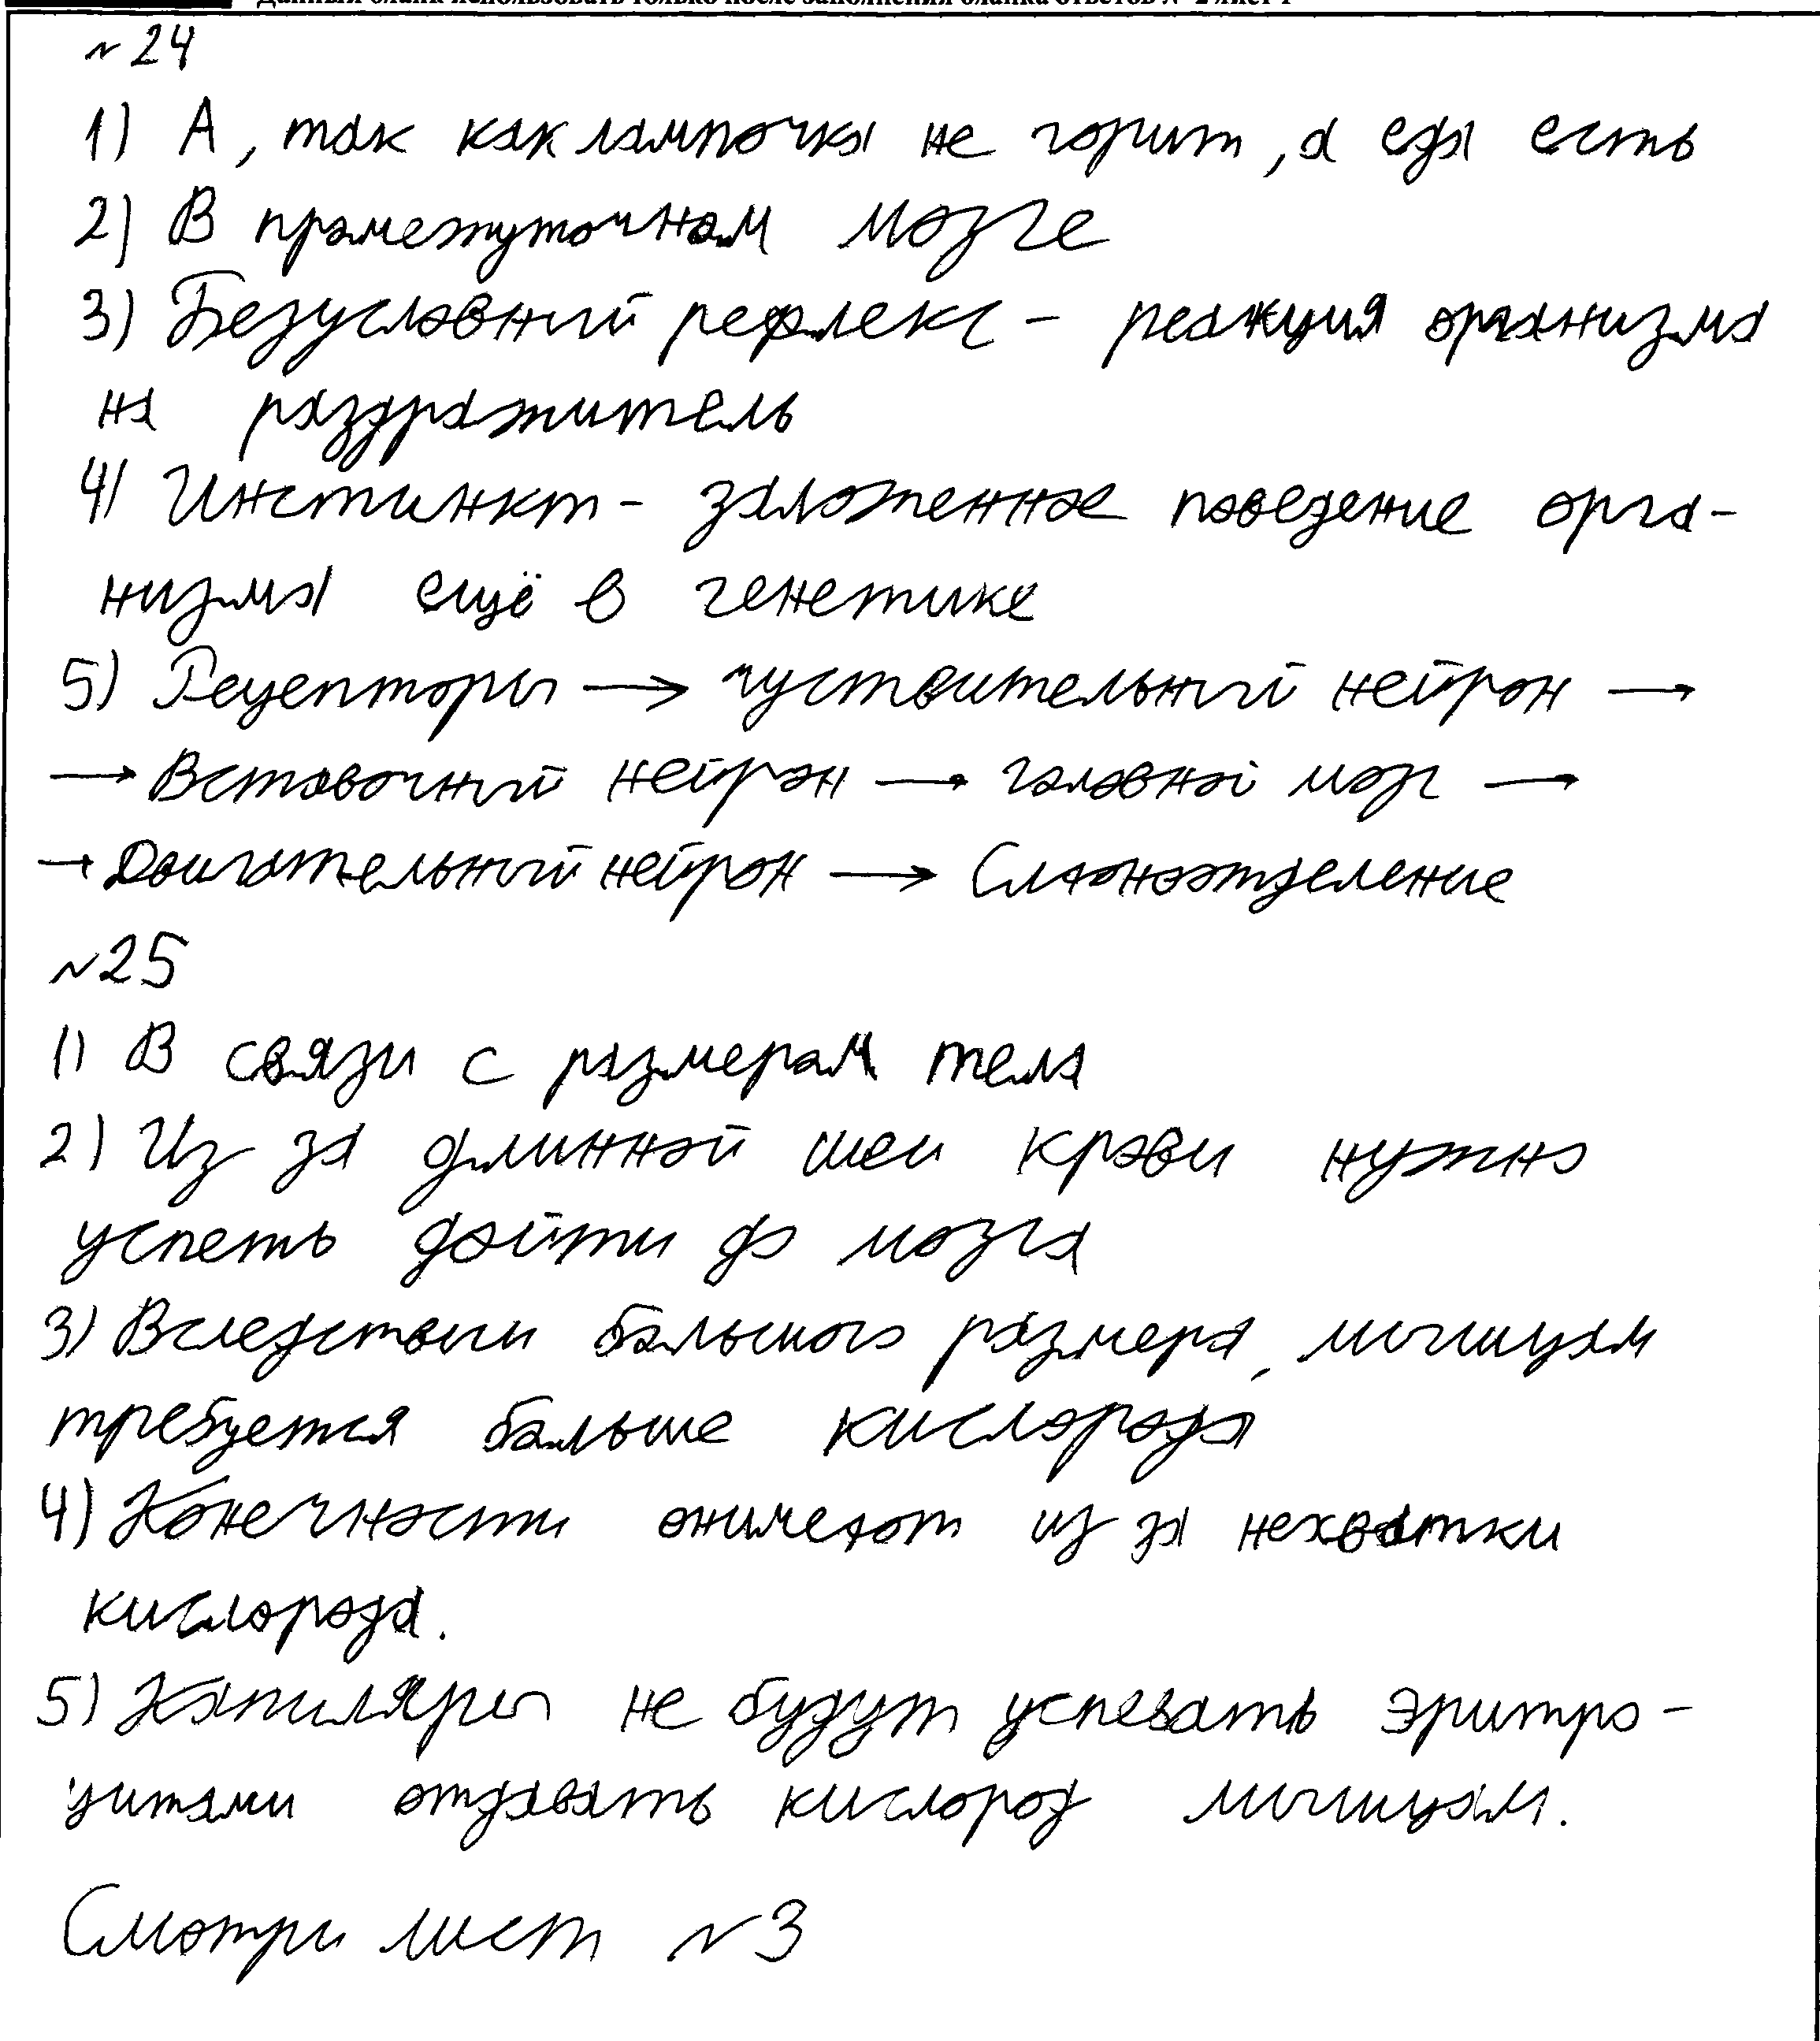 Данный бланк использовать только после заполнения бланка ответов № 2 лист 1
№ 24
1) А, так как лампочка не горит, а еда есть
2) В промежуточном мозге
3) Безусловный рефлекс - реакция организма
на раздражитель
4) Инстинкт - заложенное поведение орга-
низма ещё в генетике
5) Рецепторы → чуствительный нейрон →
→ Вставочный нейрон → головной мозг →
→ Двигательный нейрон → Слюноотделение
№25
1) В связи с размером тела
2) Из за длинной шеи крови нужно
успеть дойти до мозга
3) Вследствии большого размера, мышцам
требуется больше кислорода
4) Конечности онимеют из за нехватки
кислорода.
5) Капиляры не будут успевать эритро-
цитами отдавать кислород мышцам.
Смотри лист №3